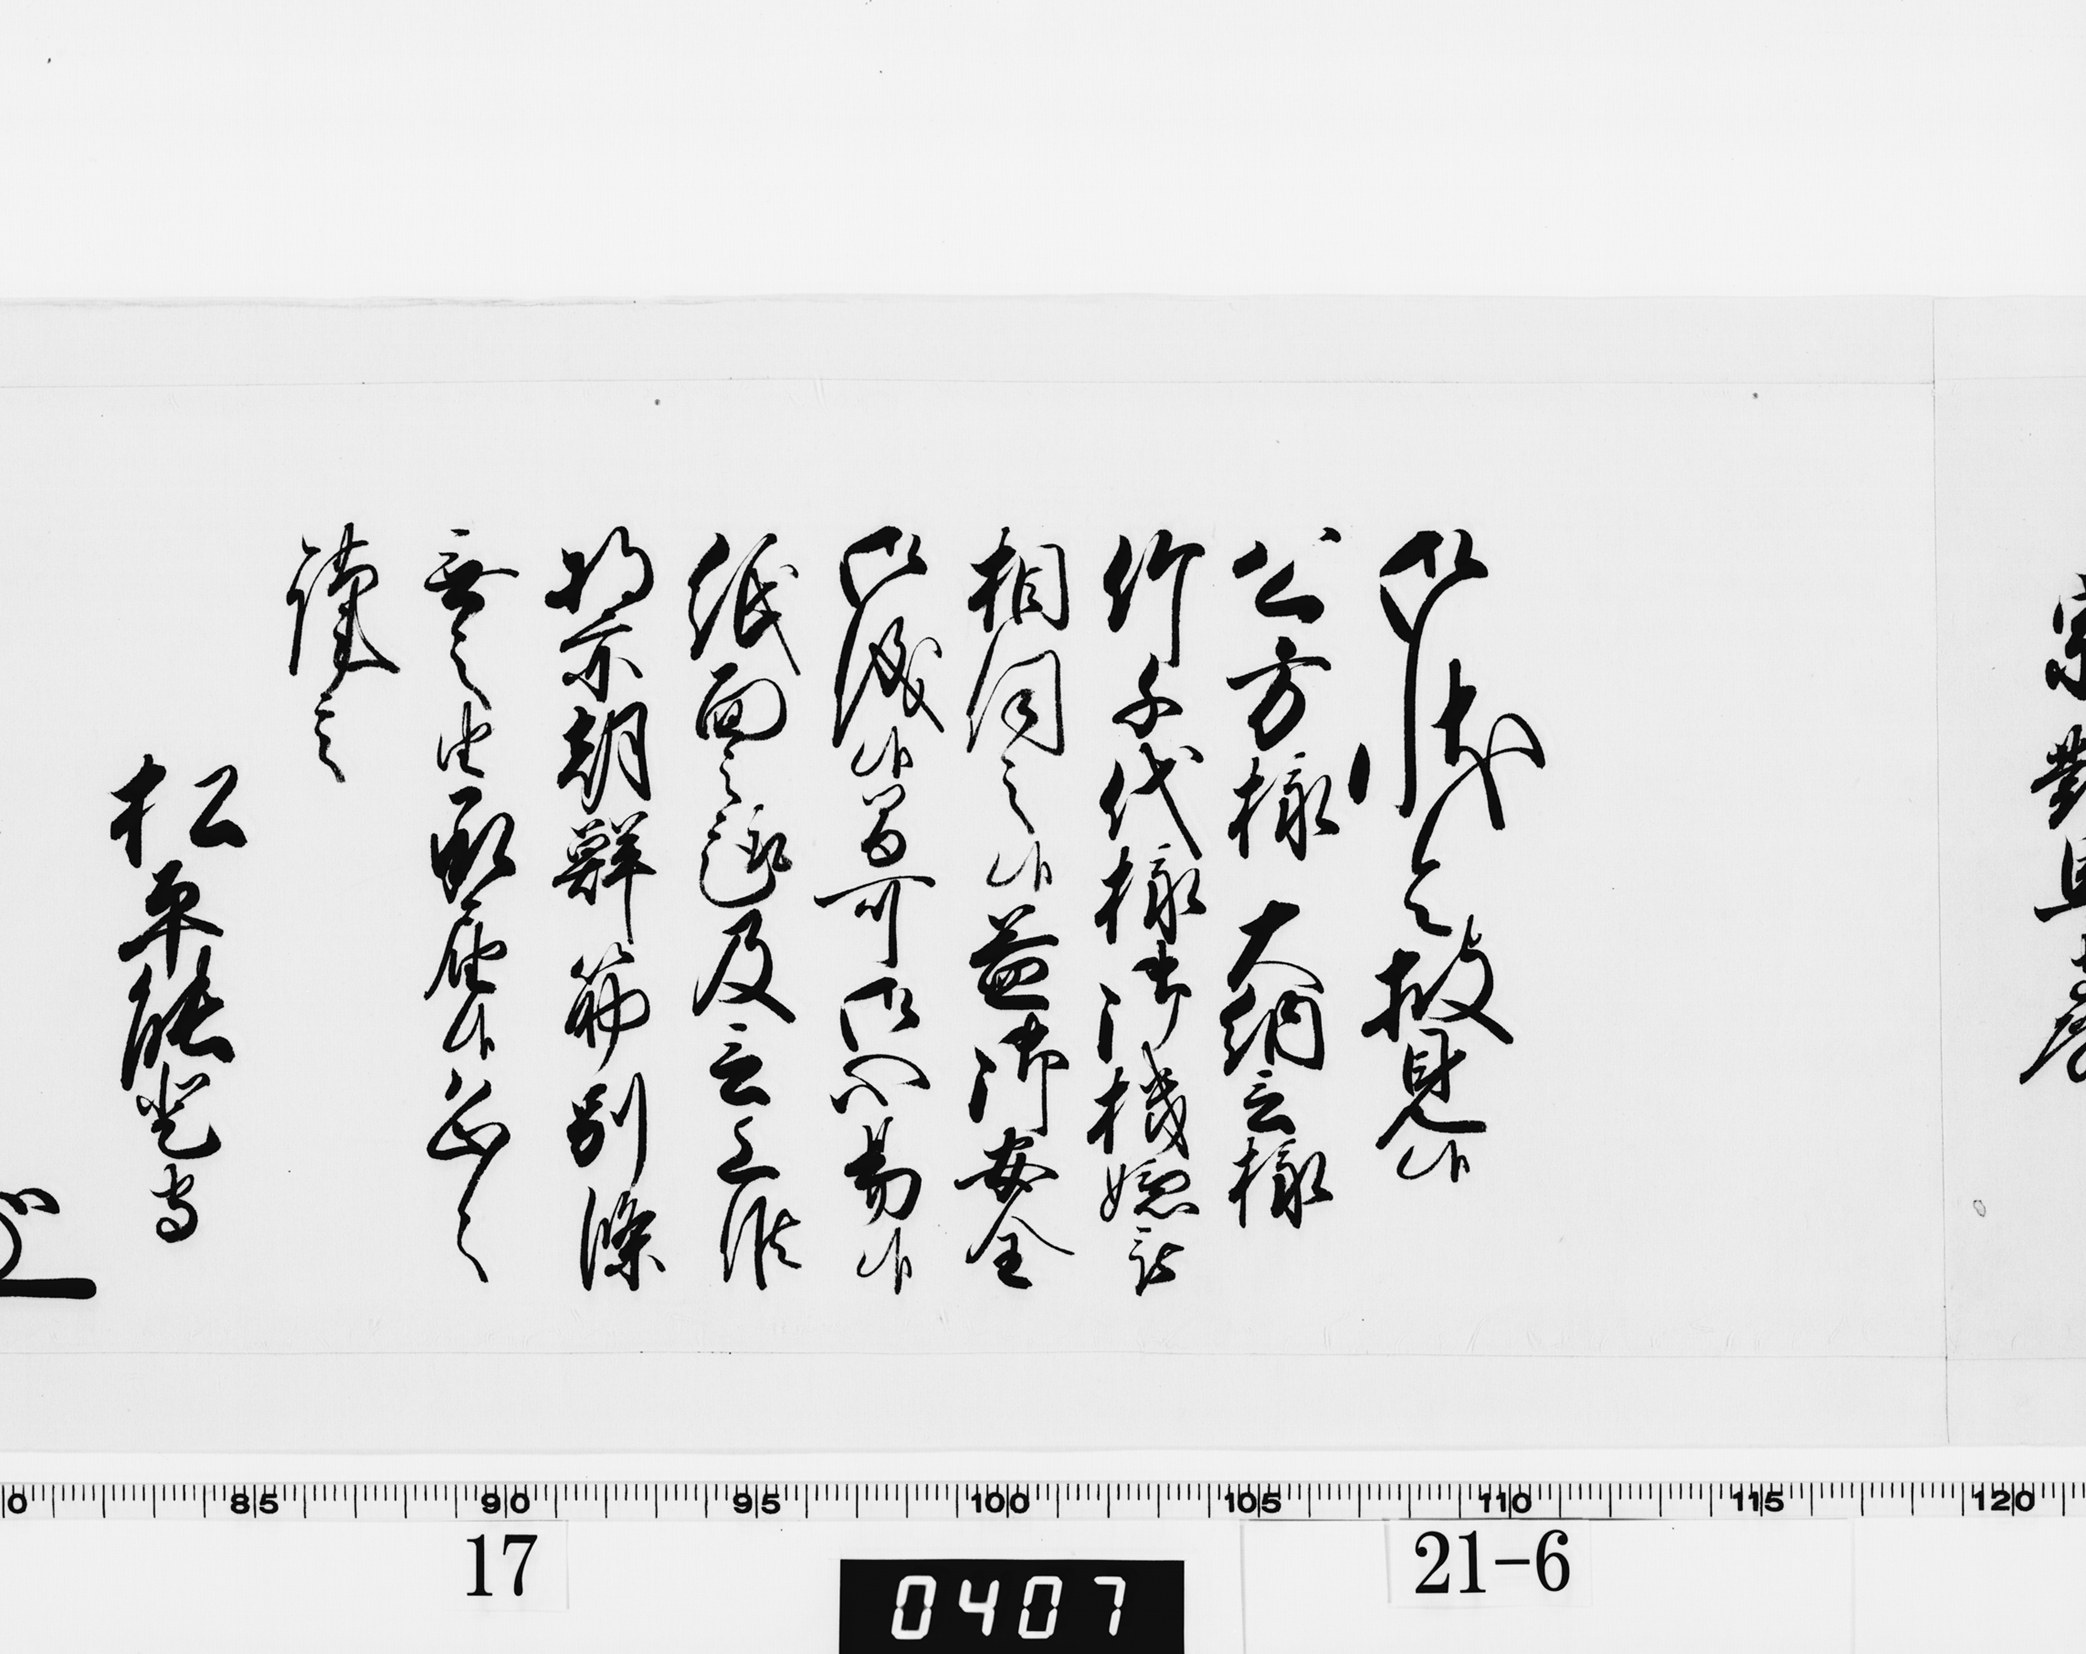 宗對
御状令披見候
公方様 大納言様
竹千代様御機嫌
相伺之候益御安全
御座候間可御心易候
紙面之趣及言上候
将亦朝鮮筋別條
無之由承届候恐々
謹言
松平能登守
0 85 90 95 100 105 110 115 120
17
21-6
0407